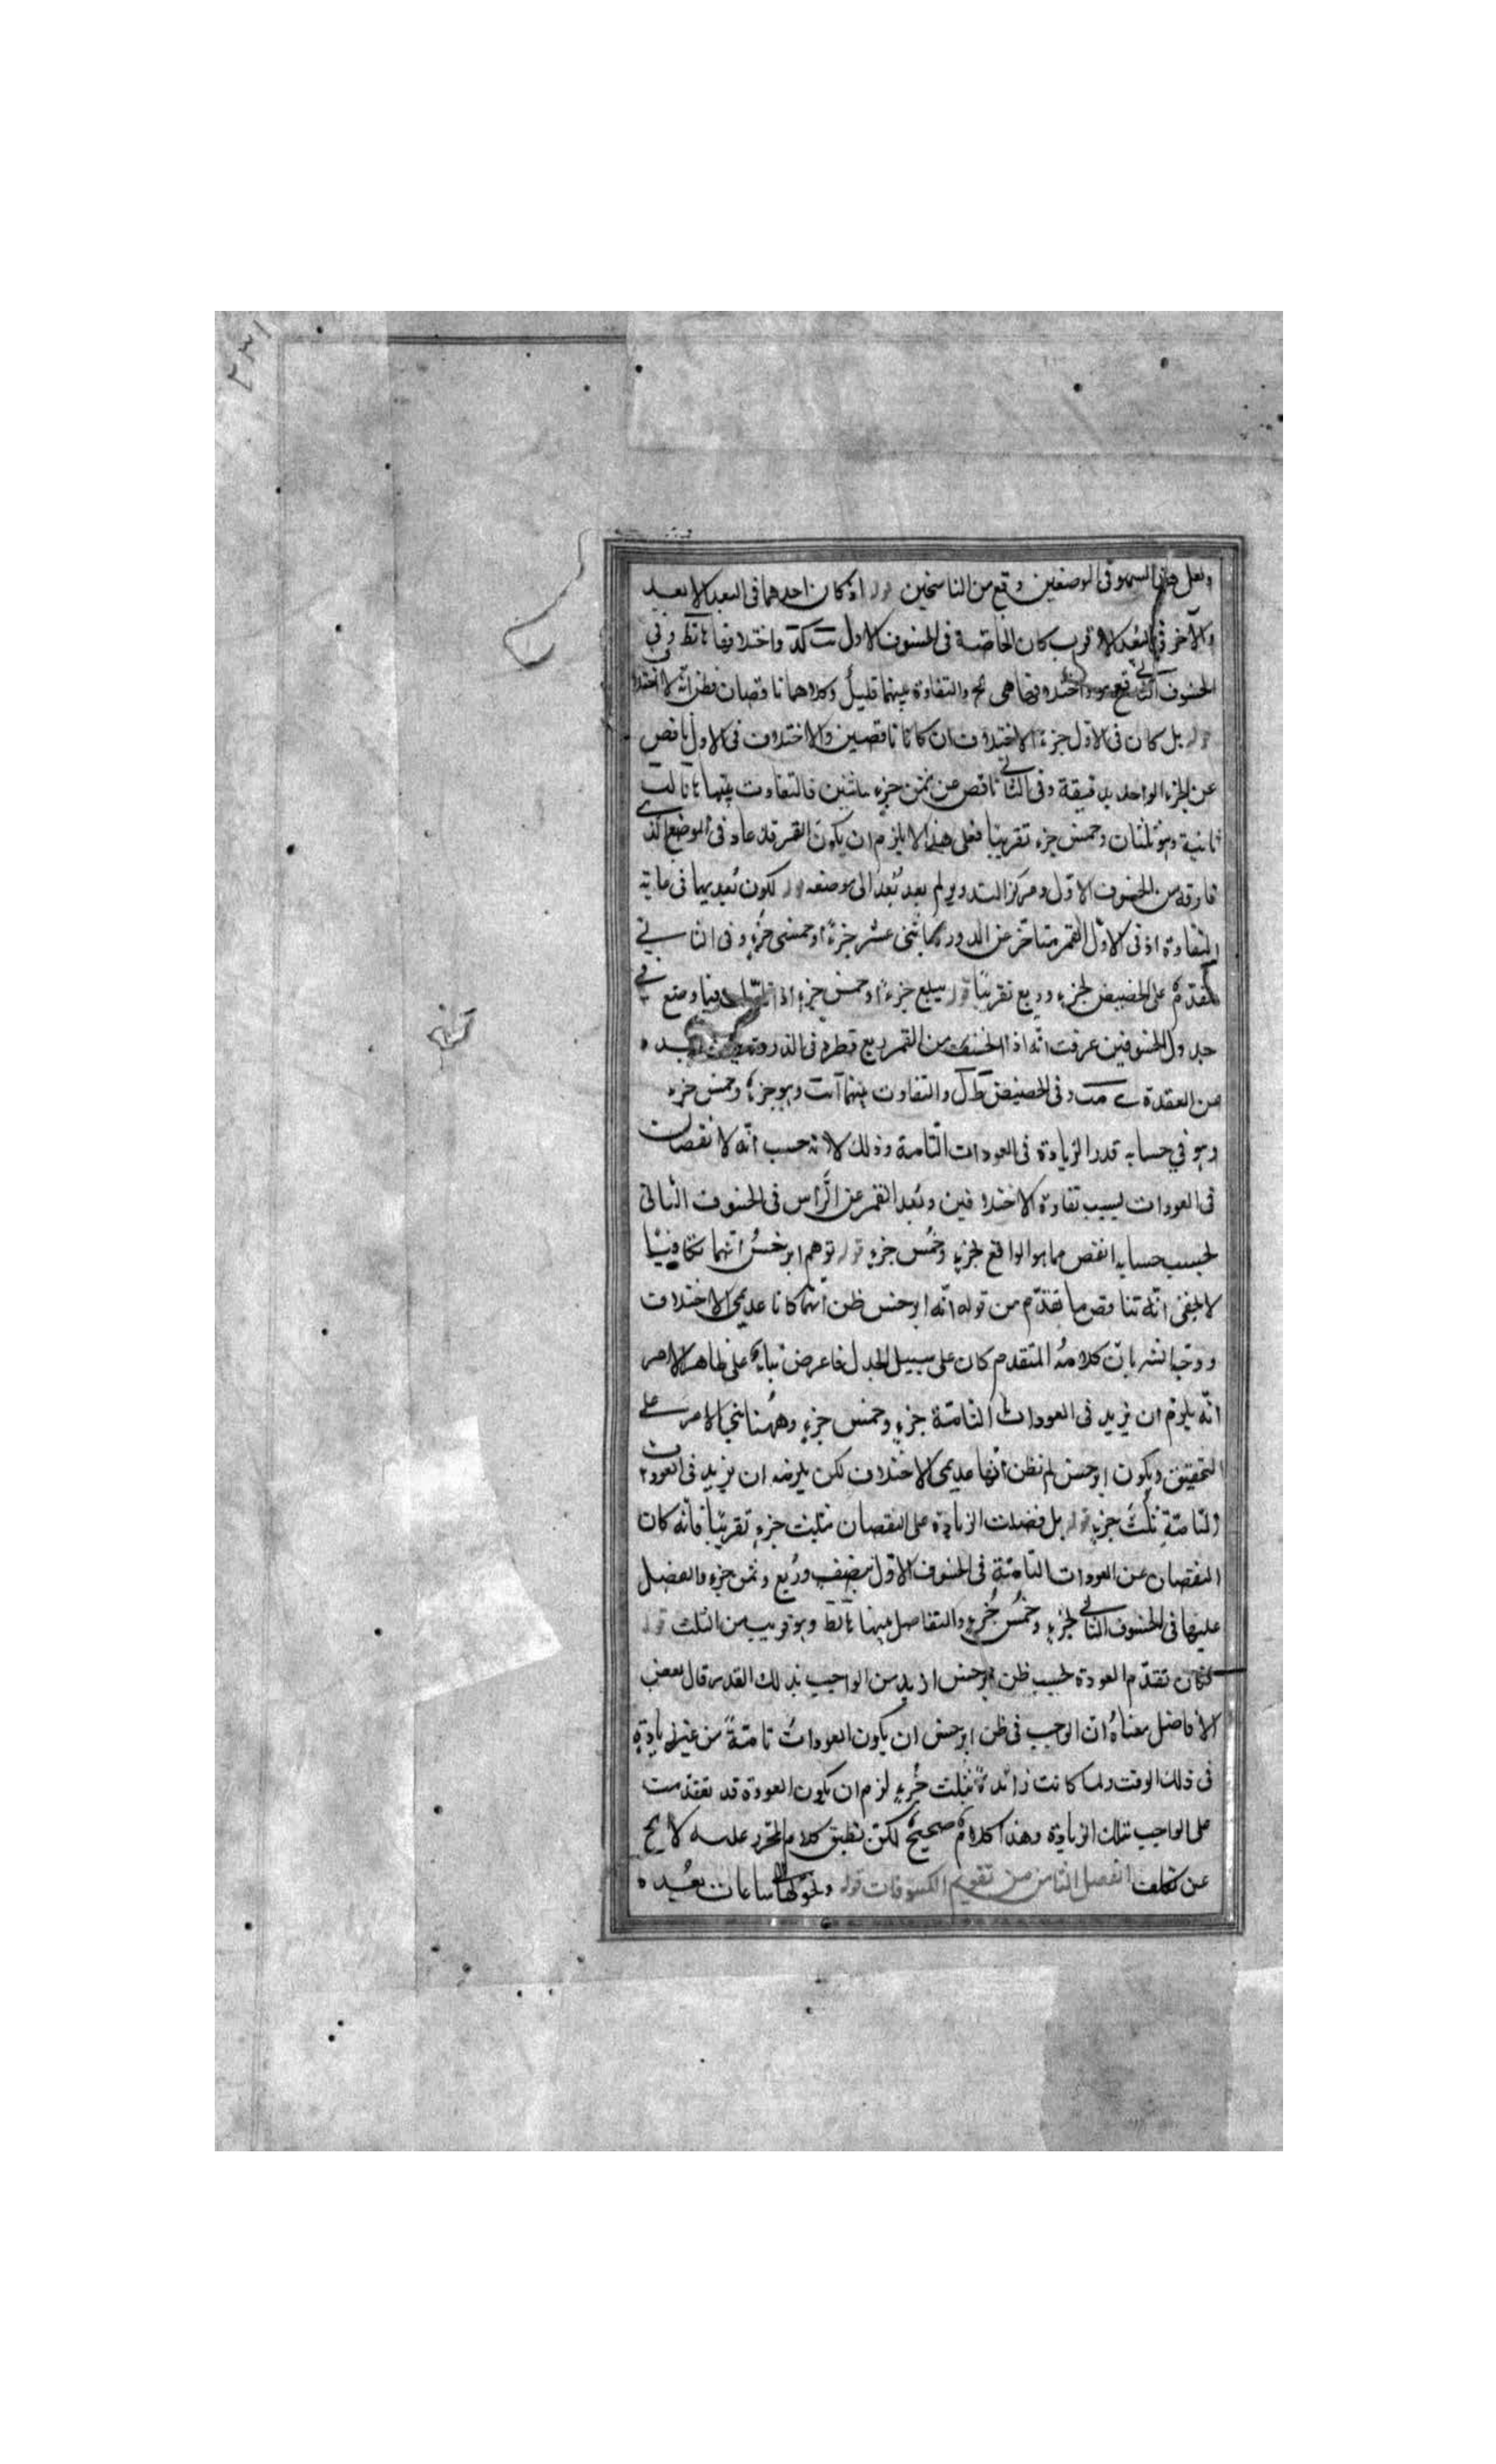 ولعل هذا السهو فى الموضعين وقع من الناسخين قوله اذ كان احدهما فى البعد الابعد
والآخر فى البعد الاقرب كان الخاصة فى الخسوف الاول واختلافها وفى
الخسوف الثانى واختلافها هى والتفاوت بينهما قليل وكلاهما ناقصان فظن انه لا اختلاف
قوله بل كان فى الاول جزء الاختلافان كانا ناقصين والاختلاف فى الاول ناقص
عن الجزء الواحد بدقيقة وفى الثانى ناقص عن ثمن جزء فالتفاوت بينهما
ثانية وهو ثلثان وخمس جزء تقريبا فعلى هذا لا يلزم ان يكون القمر قد عاد فى الموضع الذى
فارقه من الخسوف الاول ومركز التدوير لم يعد بعد الى موضعه قوله لكون بعديهما فى غاية
التفاوت اذ فى الاول القمر متاخر عن الذروة باثنى عشر جزءا وخمسى جزء وفى الثانى
متقدم على الحضيض بجزء وربع تقريبا قوله يبلغ جزءا وخمس جزء اذا فيما وضع فى
جدول الخسوفين عرفت انه اذا انخسف من القمر ربع قطره فى الذروة بعده
من العقدة وفى الحضيض ط ل والتفاوت بينهما وهو جزء وخمس جزء
وهو فى حسابه قدر الزيادة فى العودات التامة وذلك لانه حسب انه لا نقصان
فى العودات بسبب تفاوت الاختلافين وبعد القمر عن الراس فى الخسوف الثانى
بحسب حسابه انقص مما هو الواقع بجزء وخمس جزء قوله توهم ابرخس انهما تكافيا
لا يخفى انه تناقض ما تقدم من قوله انه ابرخس ظن انهما كانا عديمى الاختلاف
بان كلامه المتقدم كان على سبيل الجدل على ظاهر الامر
انه يلزم ان يزيد فى العودات التامة جزء وخمس جزء وههنا الامر على
التحقيق ويكون ابرخس لم يظن انها عديمى الاختلاف لكن يلزمه ان يزيد فى العودات
التامة ثلث جزء قوله بل فضلت الزيادة على النقصان بثلث جزء تقريبا فانه كان
النقصان عن العودات التامة فى الخسوف الاول بنصف وربع وثمن جزء والفضل
عليها فى الخسوف الثانى بجزء وخمس جزء والتفاضل بينهما وهو قريب من الثلث قوله
فكان تقدم العودة بحسب ظن ابرخس ازيد من الواجب بذلك القدر قال بعض
الافاضل معناه ان الواجب فى ظن ابرخس ان يكون العودات تامة من غير زيادة
فى ذلك الوقت ولما كانت زائدة بثلث جزء لزم ان يكون العودة قد تقدمت
على الواجب بتلك الزيادة وهذا كلام صحيح لكن تطبيق كلام المحرر عليه لا يخ
عن تكلف الفصل الثامن من تقويم الكسوفات قوله ونحولها ساعات بعده